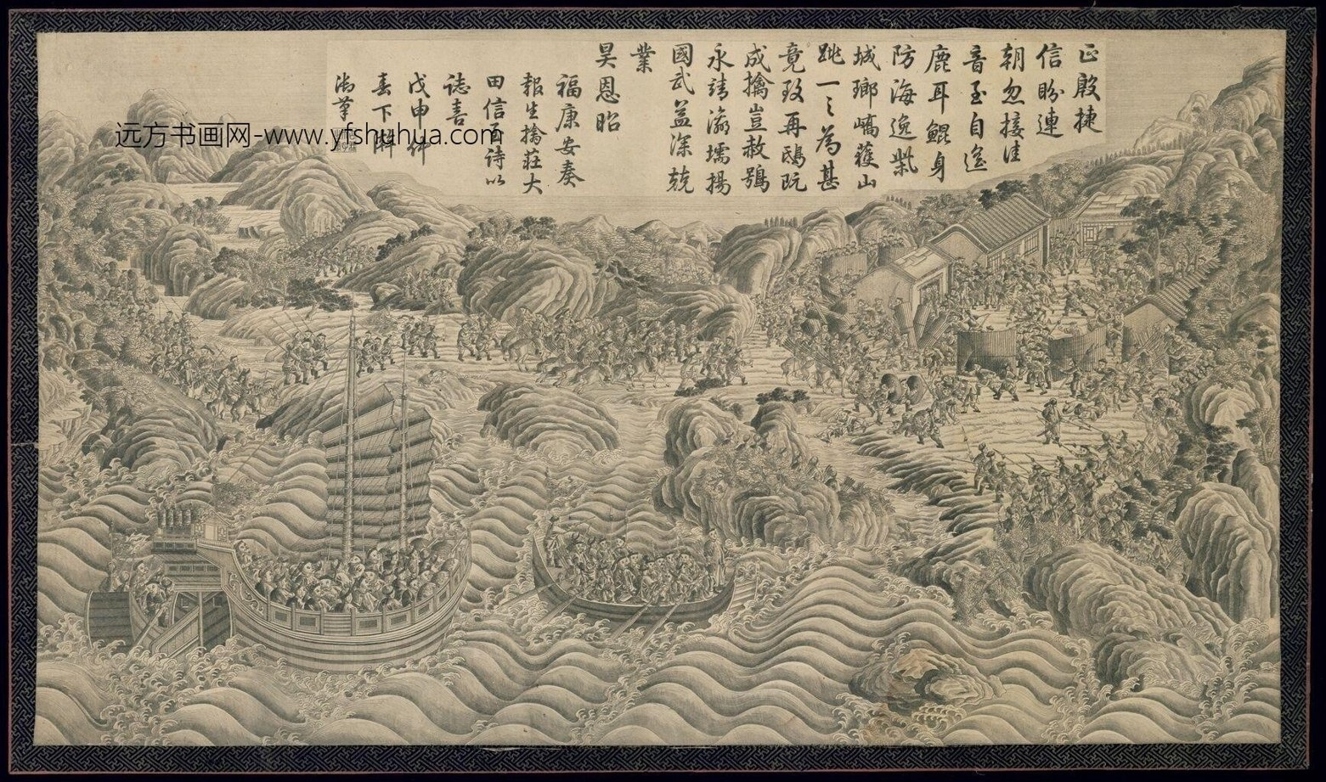 正殷捷
信盼連
朝忽接佳
音至自遙
鹿耳鯤身
防海逸柴
城瑯嶠獲山
跳一之為甚
竟致再鴟既
成擒豈赦鴞
永靖瀛壖揚
國武益深兢
業
昊恩昭
福康安奏
報生擒莊大
田信至詩以
誌喜
戊申仲
春下澣
御筆
远方书画网-www.yfshuhua.com